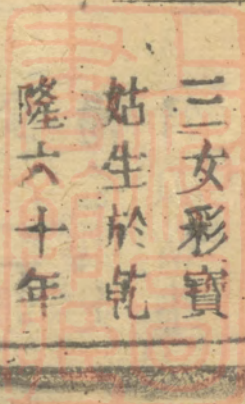 三女彩寶
姑生於乾
隆六十年